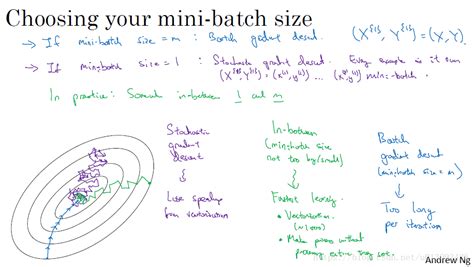 Choosing your mini-batch size
→ If mini-batch size = m : Batch gradient descent. (X^{1}, Y^{1}) = (X, Y).
→ If mini-batch size = 1 : Stochastic gradient descent. Every example is it own
(X^{1}, Y^{1}) = (x^(1), y^(1)) ... mini-batch.
In practice: Somewhere in-between 1 and m
Stochastic
gradient
descent
↓
Lose speedup
from vectorization
In-between
(mini-batch size
not too big/small)
↓
Fastest learning.
• Vectorization.
(~1000)
• Make progress without
processing entire training set.
Batch
gradient descent
(mini-batch size = m)
↓
Too long
per iteration
Andrew Ng